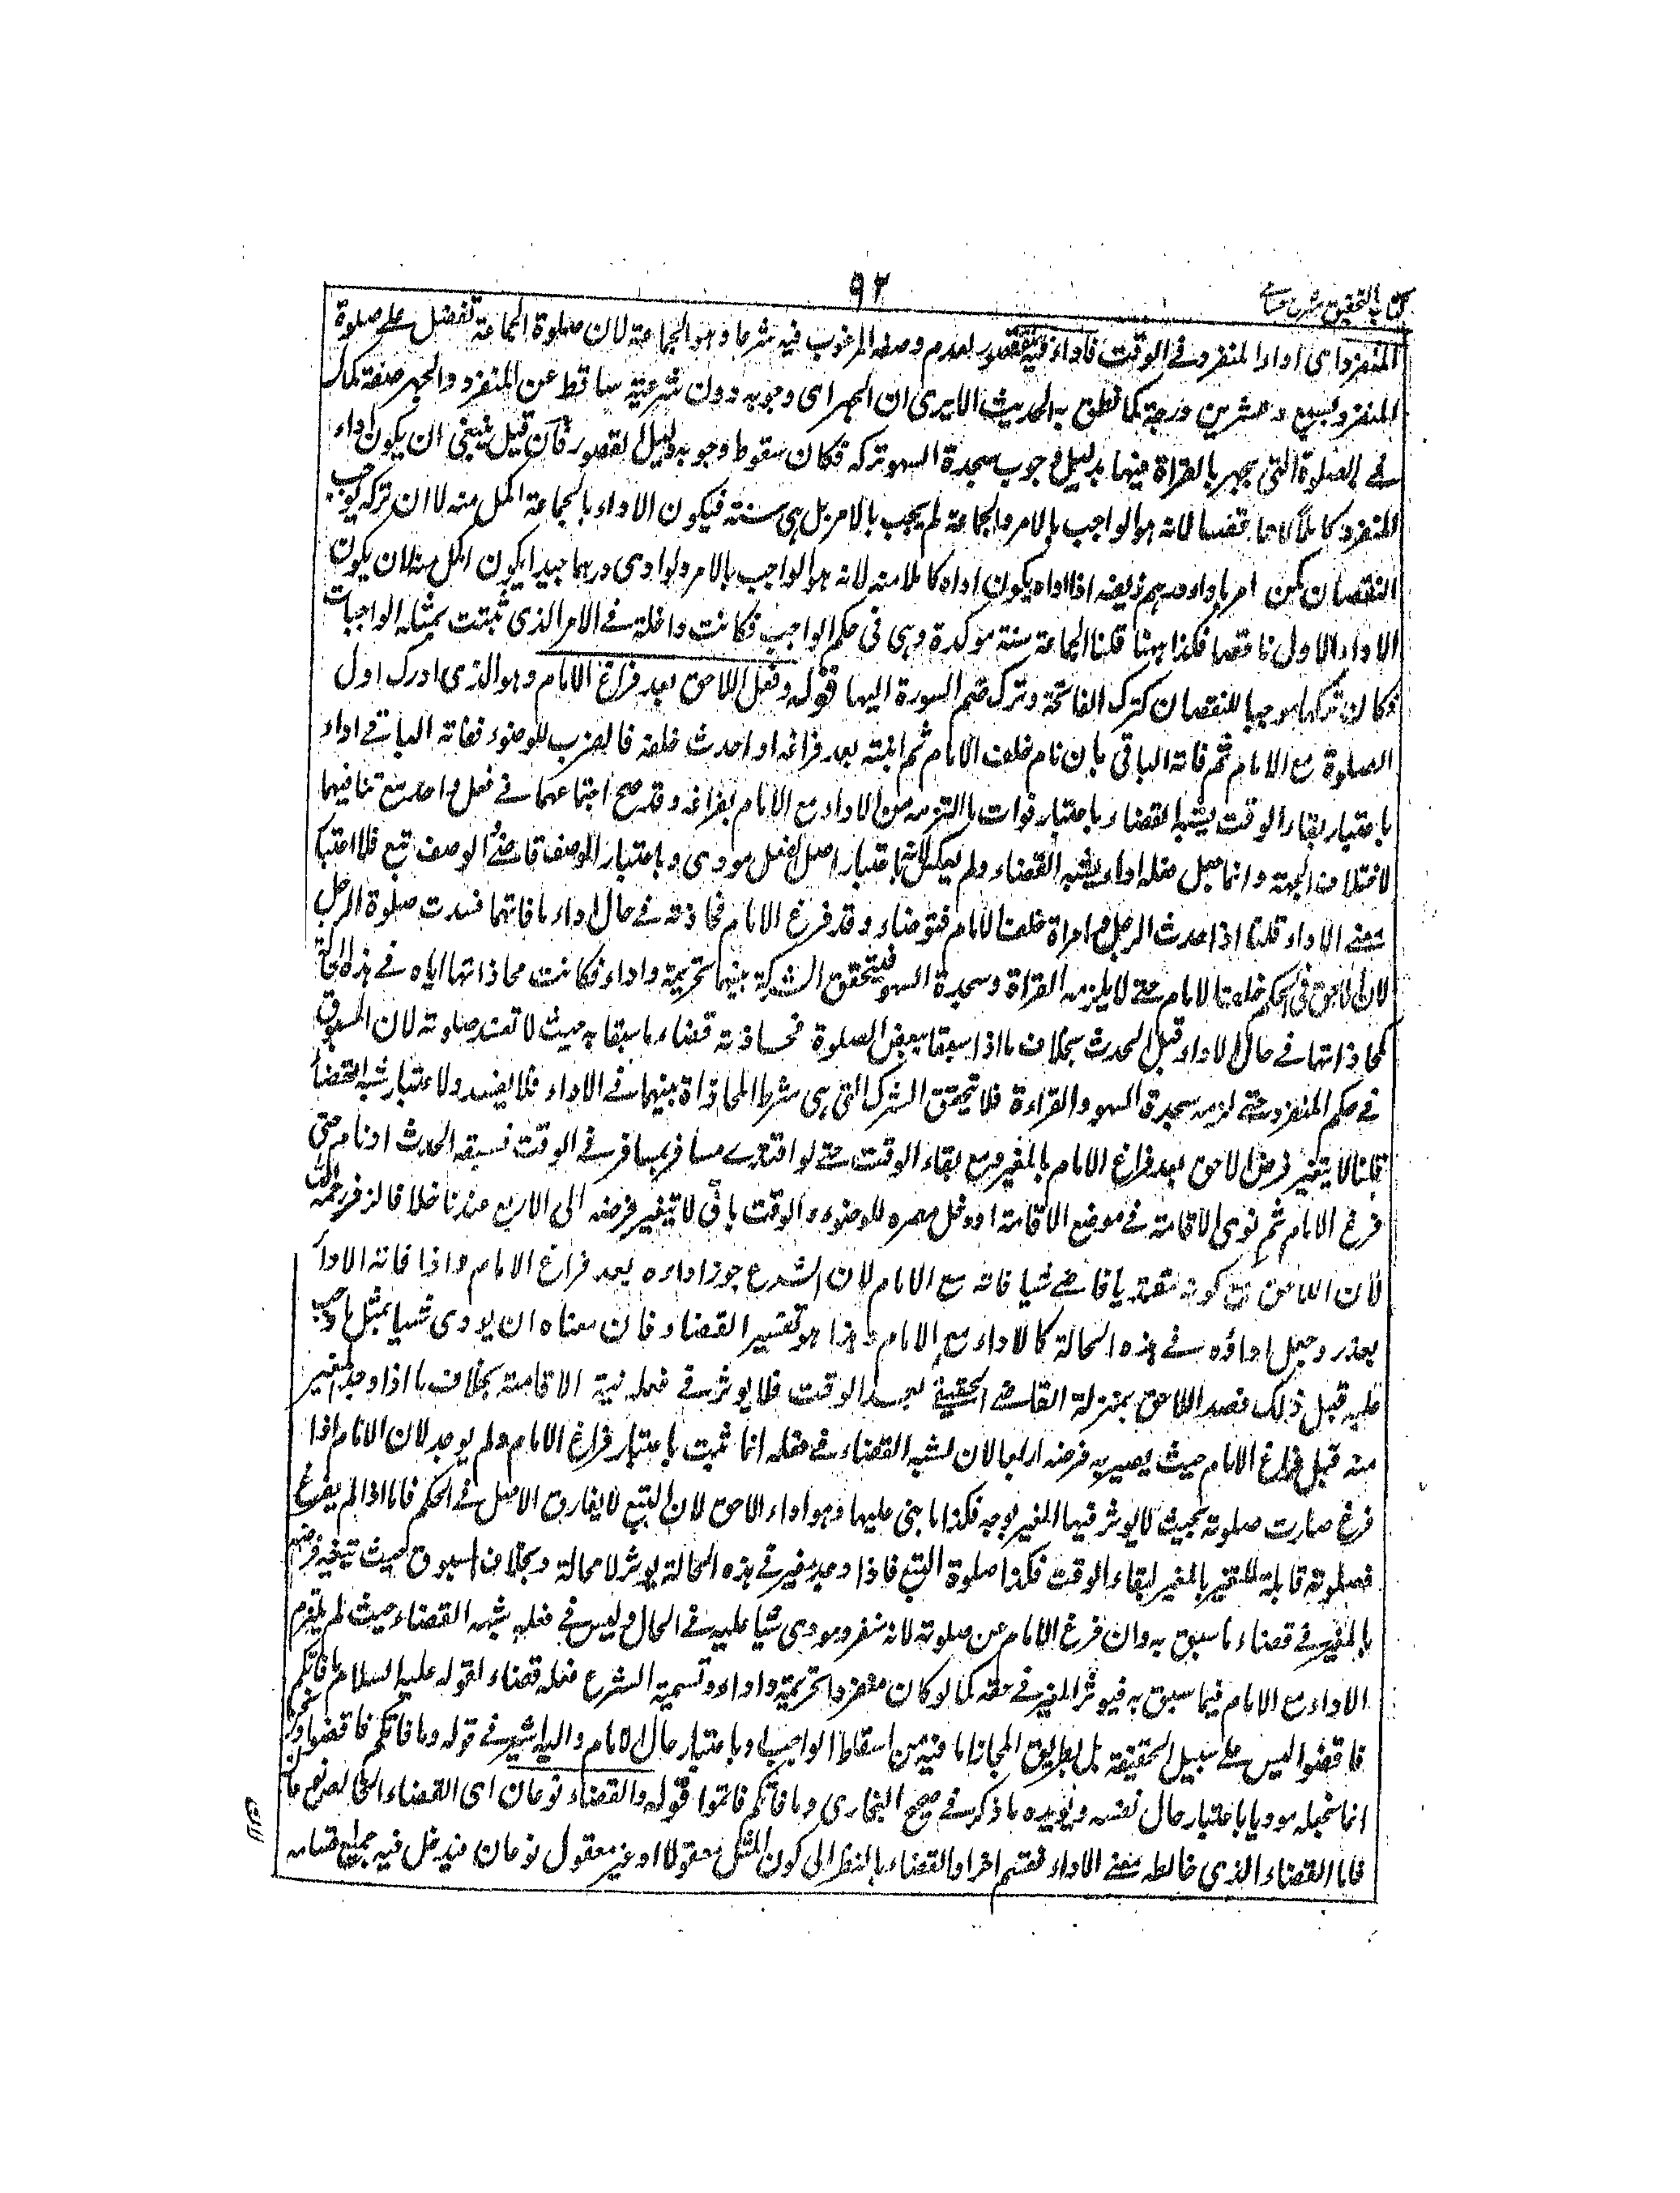 كتاب التحقيق شرح حسامى
٩٢
المنفرد اى اداء المنفرد فى الوقت فاداء فيه قصور لعدم وصفه المرغوب فيه شرعا وهو الجماعة لان صلوة الجماعة تفضل على صلوة
المنفرد بسبع وعشرين درجة كما نطق به الحديث الا يرى ان الجهر اى وجوبه دون شرعيته ساقط عن المنفرد والجهر صفة كمال
فى الصلوة التى يجهر بالقراة فيها بدليل وجوب سجدة السهو بتركه فكان سقوط وجوبه دليل القصور فان قيل ينبغى ان يكون اداء
المنفرد كاملا لا ناقصا لانه هو الواجب بالامر والجماعة لم يجب بالامر بل هى سنة فيكون الاداء بالجماعة اكمل منه لا ان تركه يوجب
النقصان كمن امر باداء درهم زيف اذا اداه يكون اداه كاملا منه لانه هو الواجب بالامر ولو ادى درهما جيدا يكون اكمل منه لان يكون
الاداء الاول ناقصا فكذا ههنا قلنا الجماعة سنة موكدة وهى فى حكم الواجب فكانت داخلة فى الامر الذى ثبتت بمثله الواجبات
فكان تركها موجبا للنقصان كترك الفاتحة وترك ضم السورة اليها قوله وفعل اللاحق بعد فراغ الامام وهو الذى ادرك اول
الصلوة مع الامام ثم فاته الباقى بان نام خلف الامام ثم انتبه بعد فراغه او احدث خلفه فانصرف للوضوء ففاته الباقى اداء
باعتبار بقاء الوقت يشبه القضاء باعتبار فوات ما التزمه من الاداء مع الامام بفراغه وقد صح اجتماعهما فى فعل واحد مع تنافيهما
لاختلاف الجهة وانما جعل فعله اداء يشبه القضاء ولم يعكس لانه باعتبار اصل الفعل مودى وباعتبار الوصف قاض والوصف تبع فلا اعتبا
معنى الاداء قلنا اذا احدث الرجل وامراة خلف الامام فتوضاء وقد فرغ الامام فحاذته فى حال اداء ما فاتهما فسدت صلوة الرجل
لان اللاحق فى الحكم خلف الامام حتى لا يلزمه القراة وسجدة السهو فيتحقق الشركة بينهما تحريمة واداء فكانت محاذاتها اياه فى هذه الحالة
كمحاذاتها فى حال الاداء قبل الحدث بخلاف ما اذا سبقا ببعض الصلوة فحاذته قضاء ما سبقا به حيث لا تفسد صلوته لان المسبوق
فى حكم المنفرد حتى لزمه سجدة السهو والقراءة فلا تتحقق الشركة التى هى شرط المحاذاة بينهما فى الاداء فلا يفسد ولاعتبار شبه القضأ
قلنا لا يتغير فرض اللاحق بعد فراغ الامام بالمغير مع بقاء الوقت حتى لو اقتدى مسافر بمسافر فى الوقت فسبقه الحدث او نام حتى
فرغ الامام ثم نوى الاقامة فى موضع الاقامة او دخل مصره للوضوء والوقت باق لا يتغير فرضه الى الاربع عندنا خلافا لزفر رحمه الله
لان اللاحق مع كونه مقتديا قاضى شيا فاته مع الامام لان الشرع جوز اداءه بعد فراغ الامام واذا فاته الادأ
بعذر وجعل اداؤه فى هذه الحالة كالاداء مع الامام وهذا هو تفسير القضاء فان معناه ان يودى شيا بمثل ما وجب
عليه قبل ذلك فصار اللاحق بمنزلة القاضى الحقيقى بعد الوقت فلا يوثر فى فعله نية الاقامة بخلاف ما اذا وجد المغير
منه قبل فراغ الامام حيث يصير به فرضه اربعا لان شبه القضاء فى فعله انما ثبت باعتبار فراغ الامام ولم يوجد لان الامام اذا
فرغ صارت صلوته بحيث لا يوثر فيها المغير بوجه فكذا ما بنى عليها وهو اداء اللاحق لان التبع لا يفارق الاصل فى الحكم فاما اذا لم يفرغ
فصلوته قابلة للتغير بالمغير لبقاء الوقت فكذا صلوة التبع فاذا وجد مغير فى هذه الحالة يوثر لا محالة وبخلاف المسبوق حيث يتغير فرضه
بالمغير فى قضاء ما سبق به وان فرغ الامام من صلوته لانه منفرد مودى شيا عليه فى الحال وليس فى فعله شبه القضاء حيث لم يلتزم
الاداء مع الامام فيما سبق به فيوثر المغير فى حقه كما لو كان منفردا تحريمة واداء وتسمية الشرع فعله قضاء لقوله عليه السلام ما فاتكم
فاقضوا ليس على سبيل الحقيقة بل بطريق المجاز لما فيه من اسقاط الواجب او باعتبار حال الامام واليه اشير فى قوله وما فاتكم فاقضوا ونحن
انما نجعله موديا باعتبار حال نفسه ويويده ما ذكر فى صحيح البخارى وما فاتكم فاتموا قوله والقضاء نوعان اى القضاء الخالص نوعان
فاما القضاء الذى خالطه معنى الاداء فقسم اخر او القضاء بالنظر الى كون المثل معقولا او غير معقول نوعان فيدخل فيه جميع اقسامه